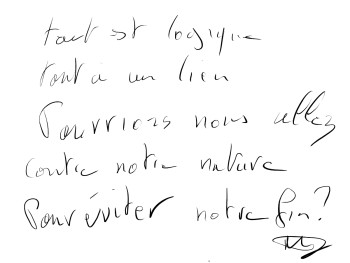 tout est logique
tout a un lien
Pourrions nous allez
contre notre nature
Pour éviter notre fin?